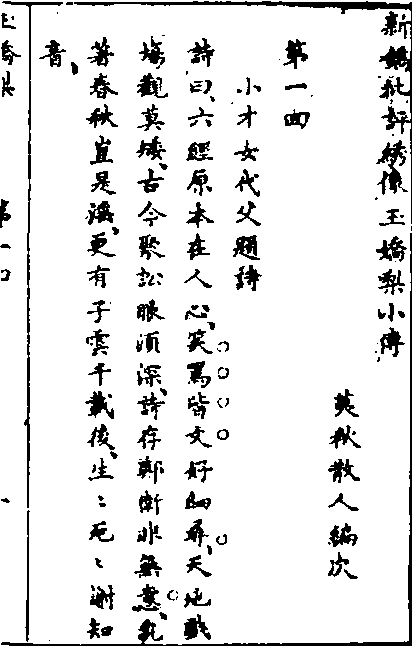 新鐫批評綉像玉嬌梨小傳
荑秋散人編次
第一回
小才女代父題詩
詩曰、六經原本在人心、笑罵皆文好細尋、天地戲
場觀莫矮、古今聚訟眼須深、詩存鄭衛非無意、乱
著春秋豈是滛、更有子雲千載後、生〻死〻謝知
音、
玉嬌梨
第一回